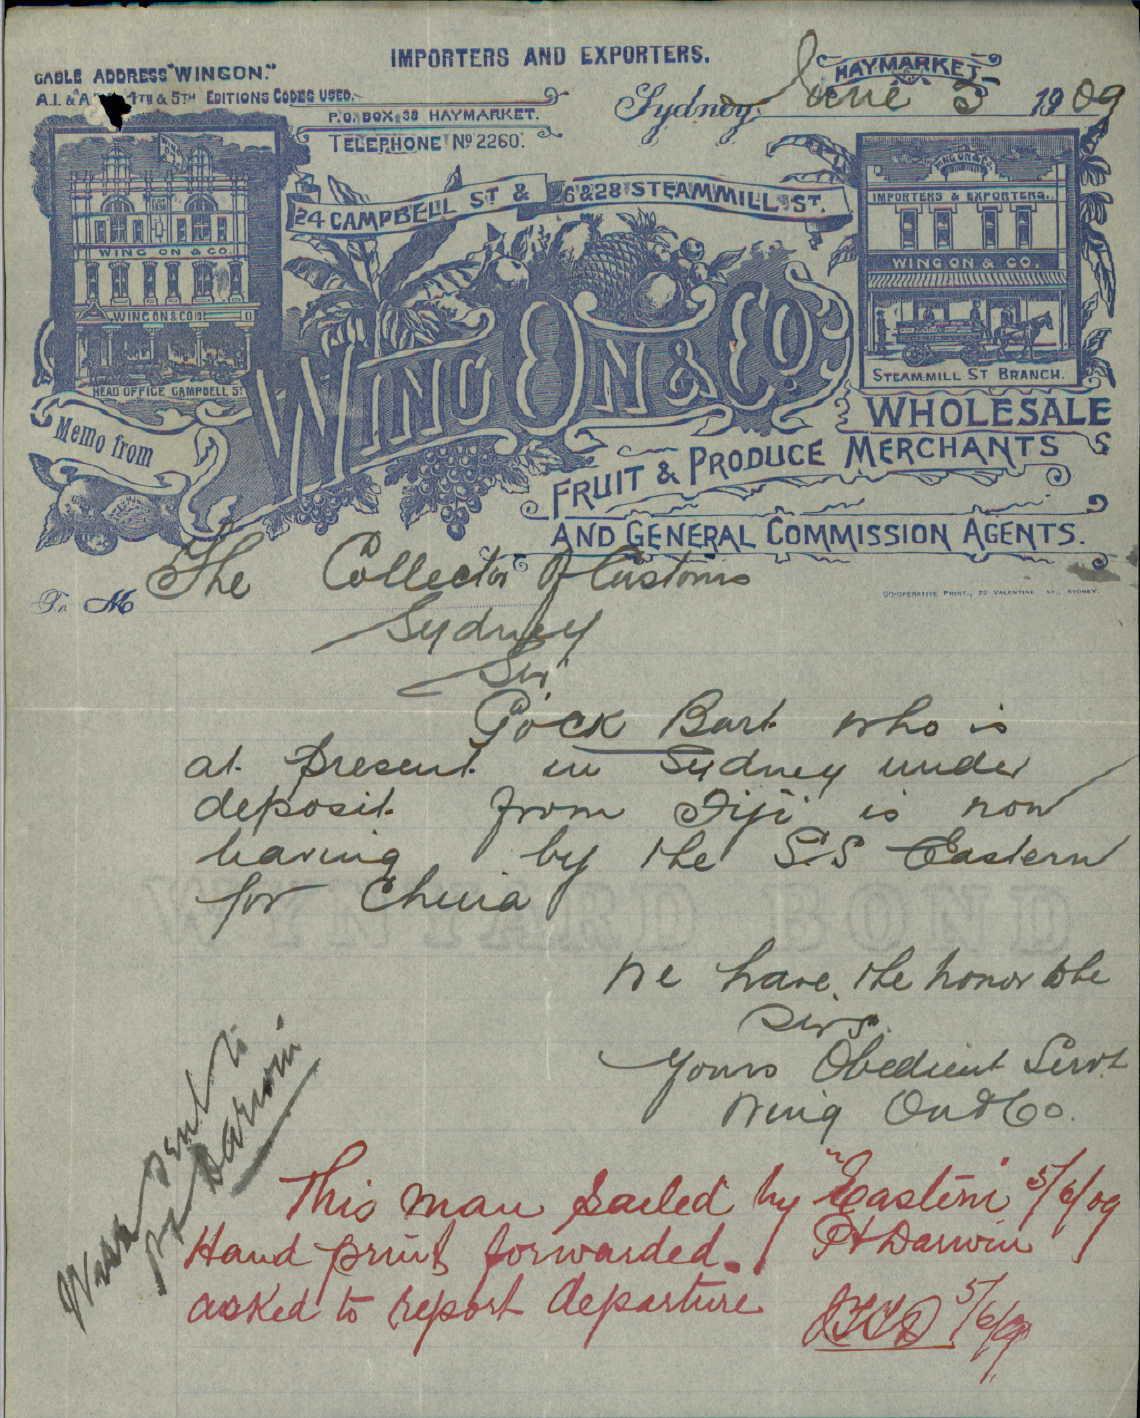 IMPORTERS AND EXPORTERS.
CABLE ADDRESS "WINGON."
A.I. & A 4TH & 5TH EDITIONS CODES USED.
P.O. BOX 38 HAYMARKET.
TELEPHONE No 2260.
HAYMARKET
Sydney, June 5 1909
24 CAMPBELL ST & 26 & 28 STEAMMILL ST.
WING ON & CO
WING ON & CO
HEAD OFFICE CAMPBELL ST
WING ON & CO
IMPORTERS & EXPORTERS.
WING ON & CO.
STEAMMILL ST BRANCH.
Memo from
WING ON & CO.
WHOLESALE
FRUIT & PRODUCE MERCHANTS
AND GENERAL COMMISSION AGENTS.
CO-OPERATIVE PRINT., VALENTINE ST., SYDNEY.
To M The Collector of Customs
Sydney
Sir
Gock Bart who is
at present in Sydney under
deposit from Fiji is now
leaving by the S.S Eastern
for China
WYNYARD BOND
We have the honor to be
Sirs
Yours Obedient Servt
Wing On & Co.
sent to
Pt Darwin
This man sailed by "Eastern" 5/6/09
Hand print forwarded. Pt Darwin
asked to report departure
5/6/09